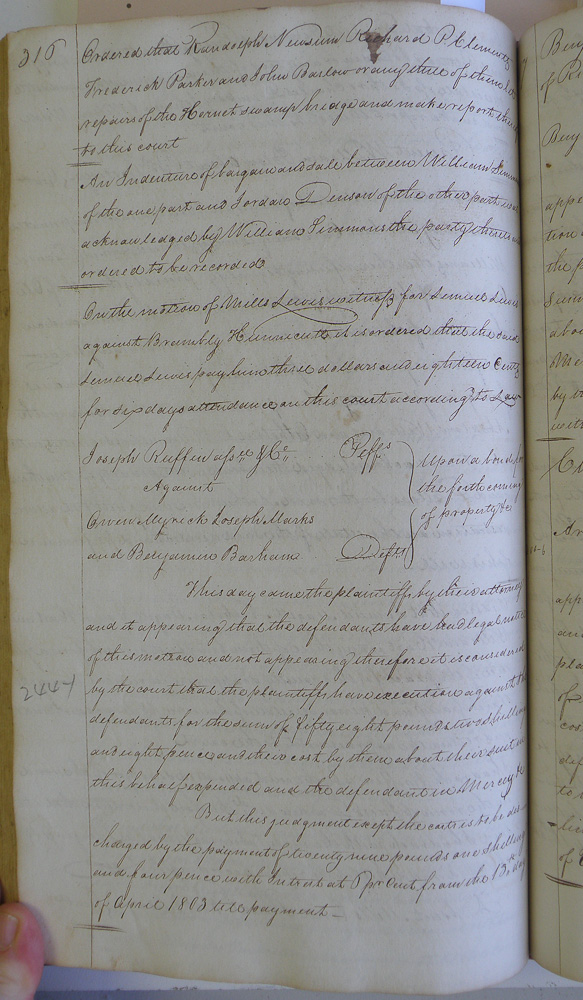 316
Ordered that Randolph Newsum Richard P. Clements
Frederick Parker and John Barlow or any three of them let
repairs of the Hornet swamp bridge and make report thereof
to this court
An Indenture of bargain and sale between William Simmons
of the one part and Jordan Denson of the other part was
acknowledged by William Simmons the party thereto and
ordered to be recorded
On the motion of Mills Lewis witness for Lemuel Lewis
against Brambly Hunnicutt it is ordered that the said
Lemuel Lewis pay him three dollars and eighteen Cents
for six days attendance on this court according to Law
Joseph Ruffin assee &Co. Peffs
Against
Owen Myrick Joseph Marks
and Benjamin Barham Defts
Upon a bond for
the forthcoming
of property &c
This day came the plaintiffs by their attorney
and it appearing that the defendants have had legal notice
of this motion and not appearing therefore it is considered
by the court that the plaintiffs have execution against the
2444
defendants for the sum of fifty eight pounds two shillings
and eight pence and their cost by them about their suit in
this behalf expended and the defendant in Mercy &c
But this judgment except the costs is to be dis
charged by the payment of twenty nine pounds one shilling
and four pence with Intrest at pr Cent from the 13th day
of April 1803 till payment